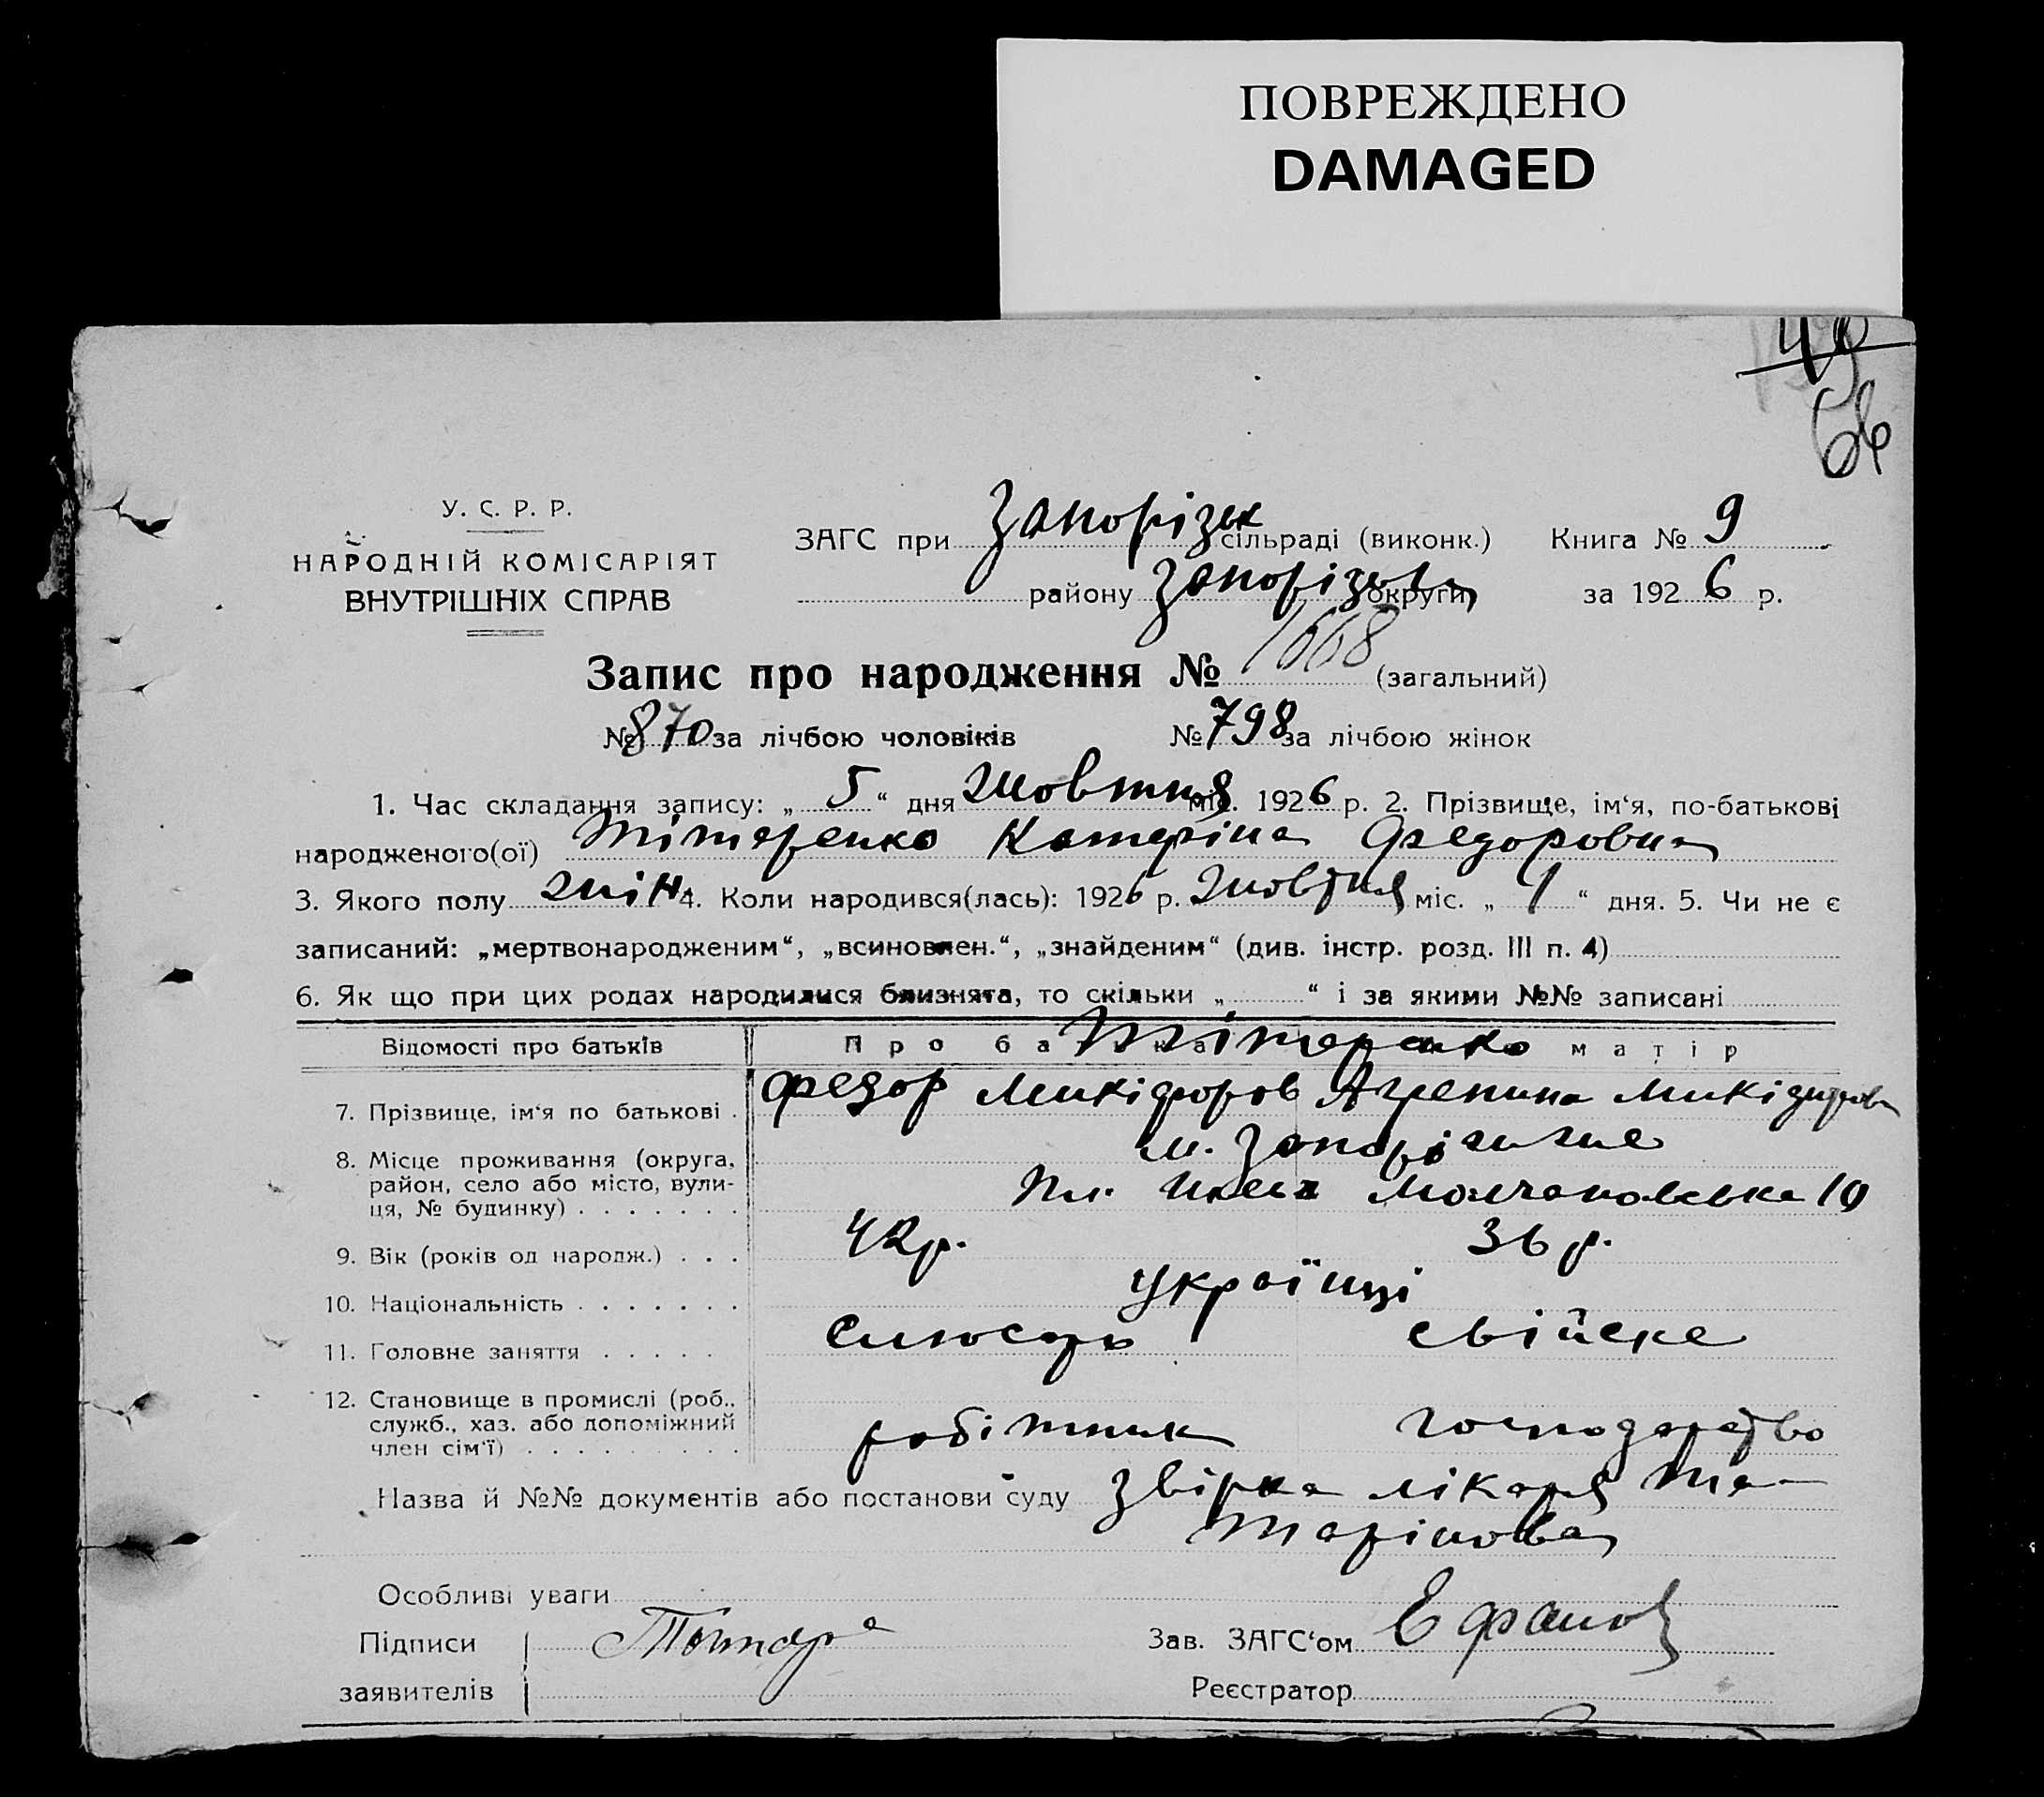 ПОВРЕЖДЕНО
DAMAGED
66
У. С. Р. Р.
НАРОДНІЙ КОМІСАРІЯТ
ВНУТРІШНІХ СПРАВ
ЗАГС при Запорізьк сільраді (виконк.) Книга № 9
району Запорізьк округи за 1926 р.
Запис про народження № 1668 (загальний)
№ 870 за лічбою чоловіків № 798 за лічбою жінок
1. Час складання запису: „ 5 “ дня Жовтня міс. 1926 р. 2. Прізвище, ім‘я, по-батькові
народженого(ої) Тітаренко Катеріна Федоровна
3. Якого полу жін. 4. Коли народився(лась): 1926 р. Жовтня міс. „ 1 “ дня. 5. Чи не є
записаний: „мертвонародженим“, „всиновлен.“, „знайденим“ (див. інстр. розд. III п. 4)
6. Як що при цих родах народилися близнята, то скільки „ “ і за якими №№ записані
Відомості про батьків Про батька Тітаренко матір
7. Прізвище, ім‘я по батькові . Федор Микіфоров Агрепина Микіфоровн
8. Місце проживання (округа, район, село або місто, вули-ця, № будинку) . . . . . . . м. Запоріжже
Молчановська 10
9. Вік (років од народж.) . . . 42р. 36 р.
10. Національність . . . . . . . українці
11. Головне заняття . . . . . Слюсарь свійске
12. Становище в промислі (роб.,
служб., хаз. або допоміжний
член сім‘ї) . . . . . . . . . робітник господарство
Назва й №№ документів або постанови суду Звірка лікаря
Особливі уваги
Підписи Зав. ЗАГС‘ом Ефанов
заявителів Реєстратор